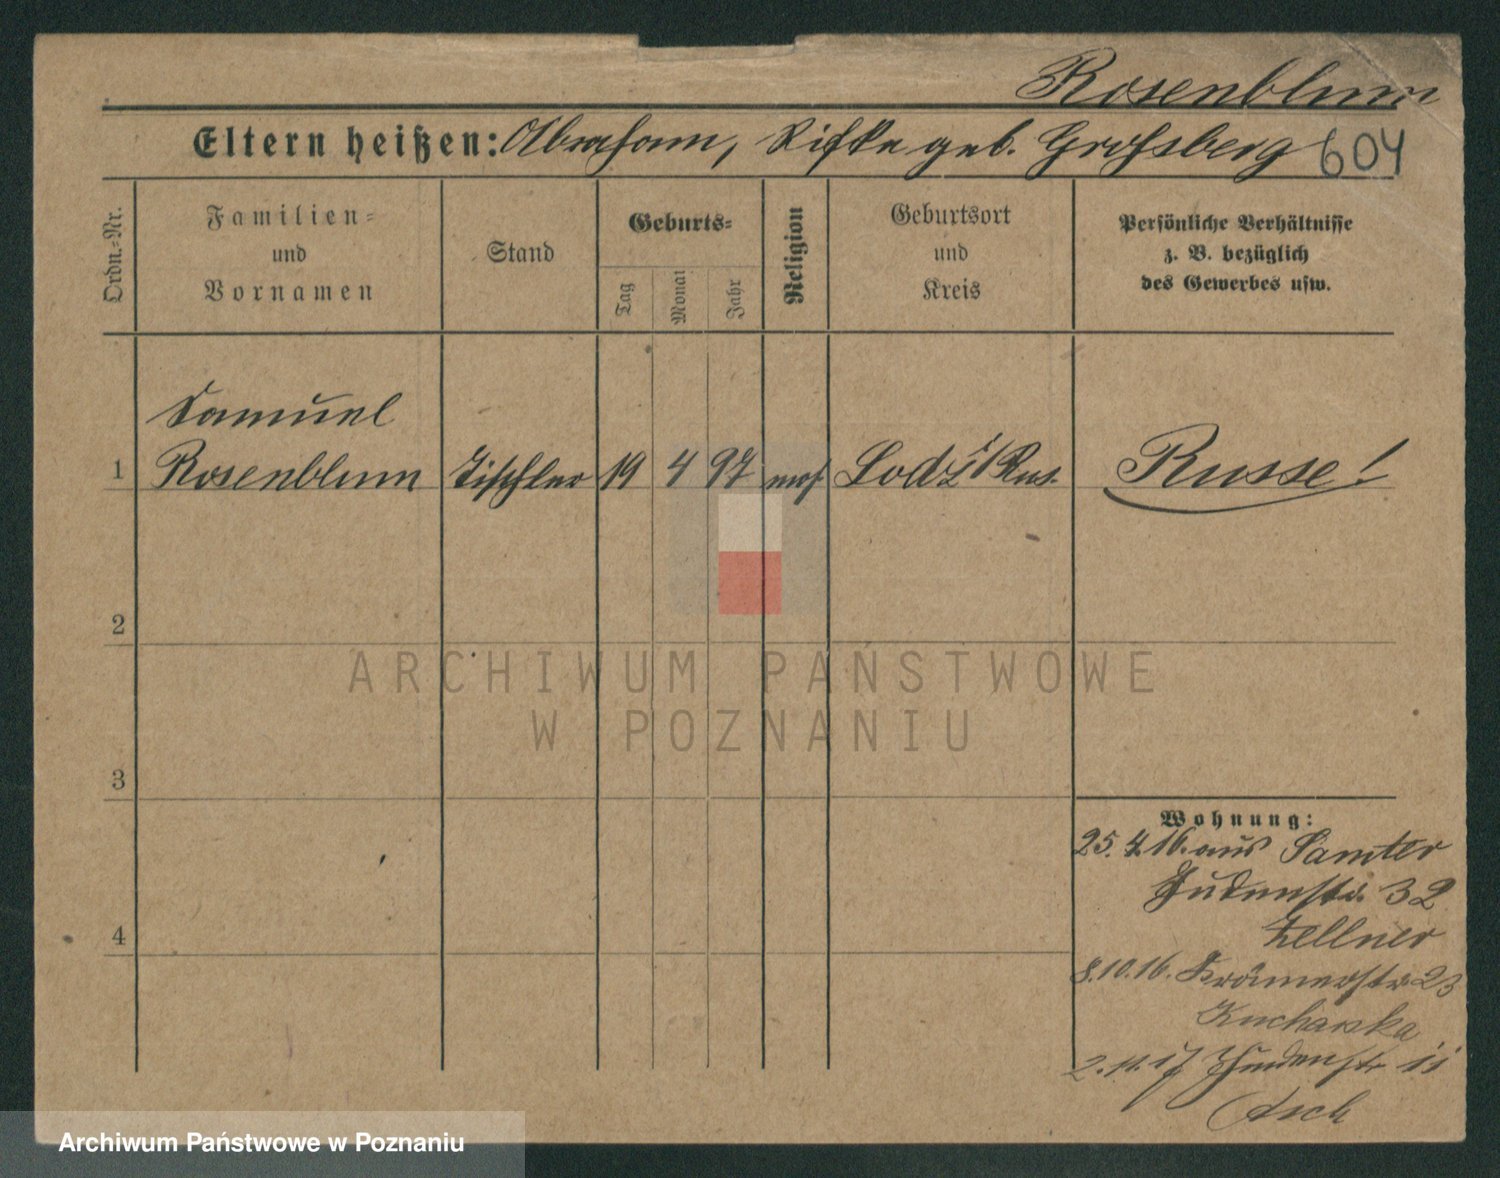 Rosenblum
Eltern heißen: Abraham, Rifke geb. Großberg 604
Ordn.-Nr.
Familien- und Vornamen
Stand
Geburts-
Tag
Monat
Jahr
Religion
Geburtsort und Kreis
Persönliche Verhältnisse
z. B. bezüglich
des Gewerbes usw.
Samuel
1 Rosenblum Tischler 19 4 97 mos. Lodz i/Rus. Russe!
2
3
4
Wohnung:
25.4.16. aus Samter
Judenstr. 32
Zellner
8.10.16. Krämerstr. 23
Kucharska
2.11.17 Judenstr 11
Asch
ARCHIWUM PAŃSTWOWE
W POZNANIU
Archiwum Państwowe w Poznaniu